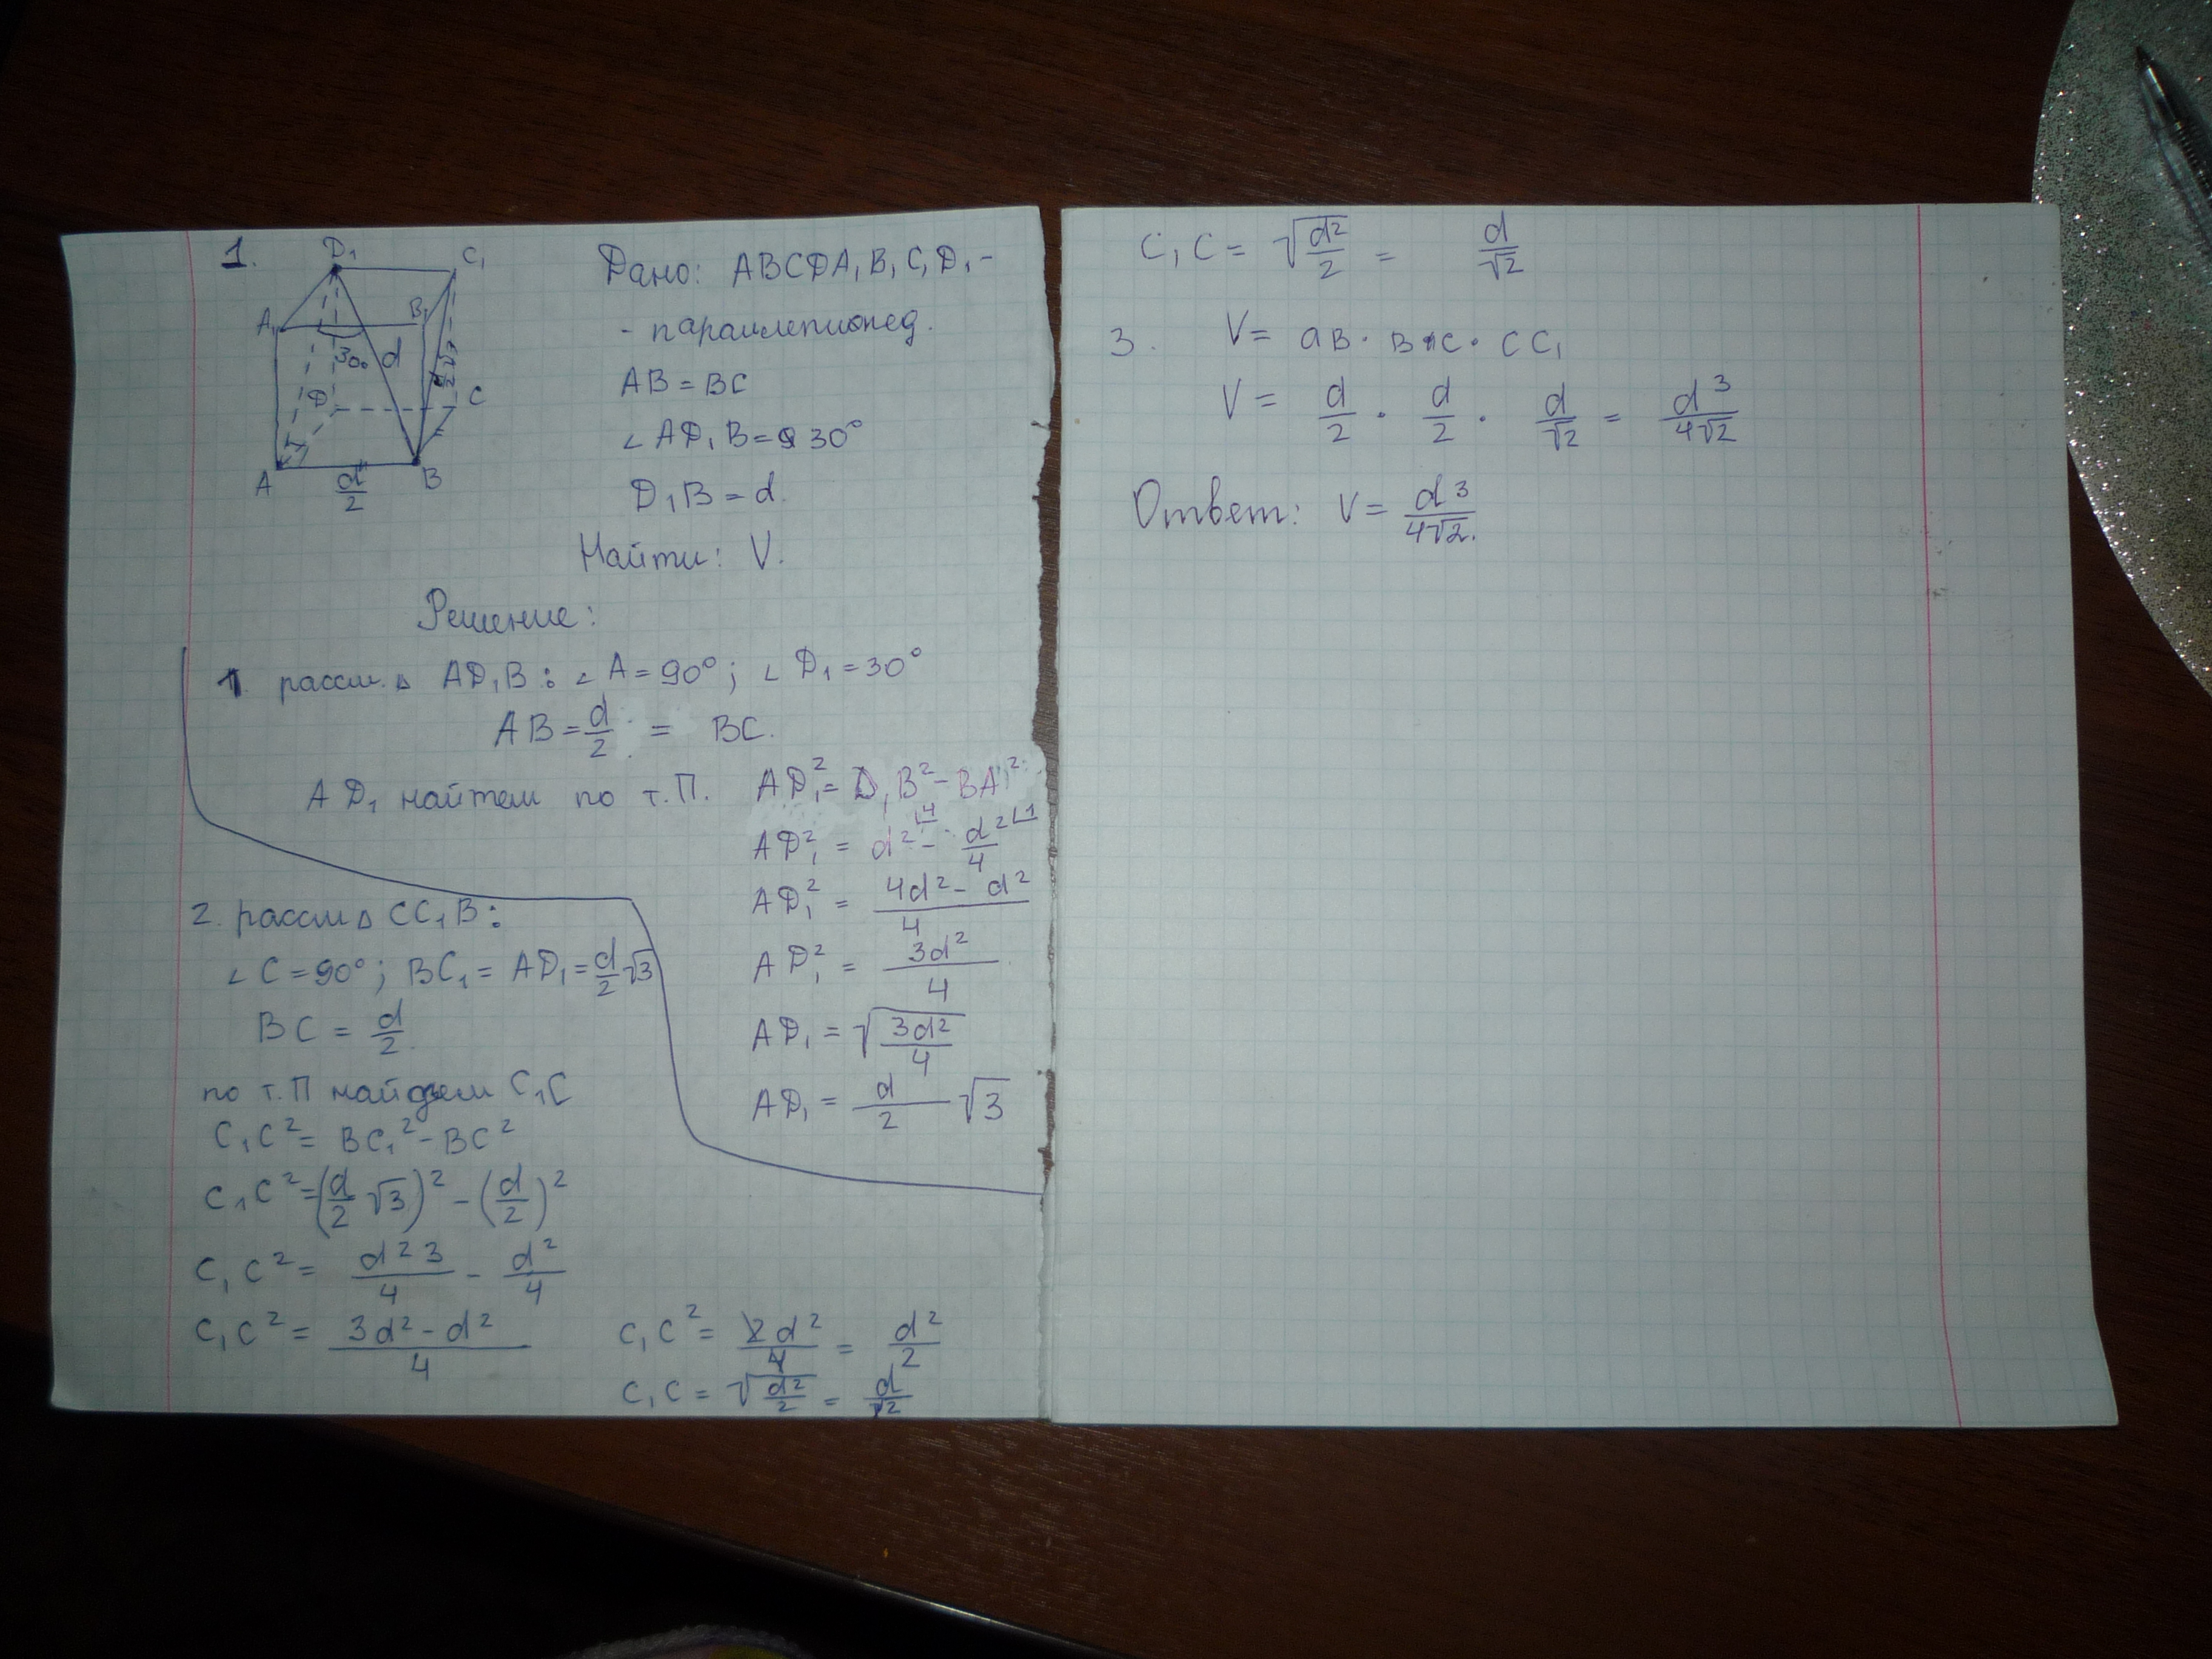 1.
D₁ C₁
A₁ B₁
30° d d/2 √3
D C
A B
d/2
Дано: ABCDA₁B₁C₁D₁ -
- параллепипед.
AB = BC
∠ AD₁B = 30°
D₁B = d.
Найти: V.
Решение:
1. рассм. Δ AD₁B: ∠ A = 90°; ∠ D₁ = 30°
AB = d/2 = BC.
AD₁ найтем по т.П. AD₁² = D₁B² - BA²
AD₁² = d² - d²/4
AD₁² = (4d² - d²)/4
AD₁² = 3d²/4
AD₁ = √(3d²/4)
AD₁ = d/2 √3
2. рассм Δ CC₁B:
∠ C = 90°; BC₁ = AD₁ = d/2 √3
BC = d/2.
по т.П найдем C₁C
C₁C² = BC₁² - BC²
C₁C² = (d/2 √3)² - (d/2)²
C₁C² = d²3/4 - d²/4
C₁C² = (3d² - d²)/4
C₁C² = 2d²/4 = d²/2
C₁C = √(d²/2) = d/√2
C₁C = √(d²/2) = d/√2
3. V = aB · BC · CC₁
V = d/2 · d/2 · d/√2 = d³/4√2
Ответ: V = d³/4√2.